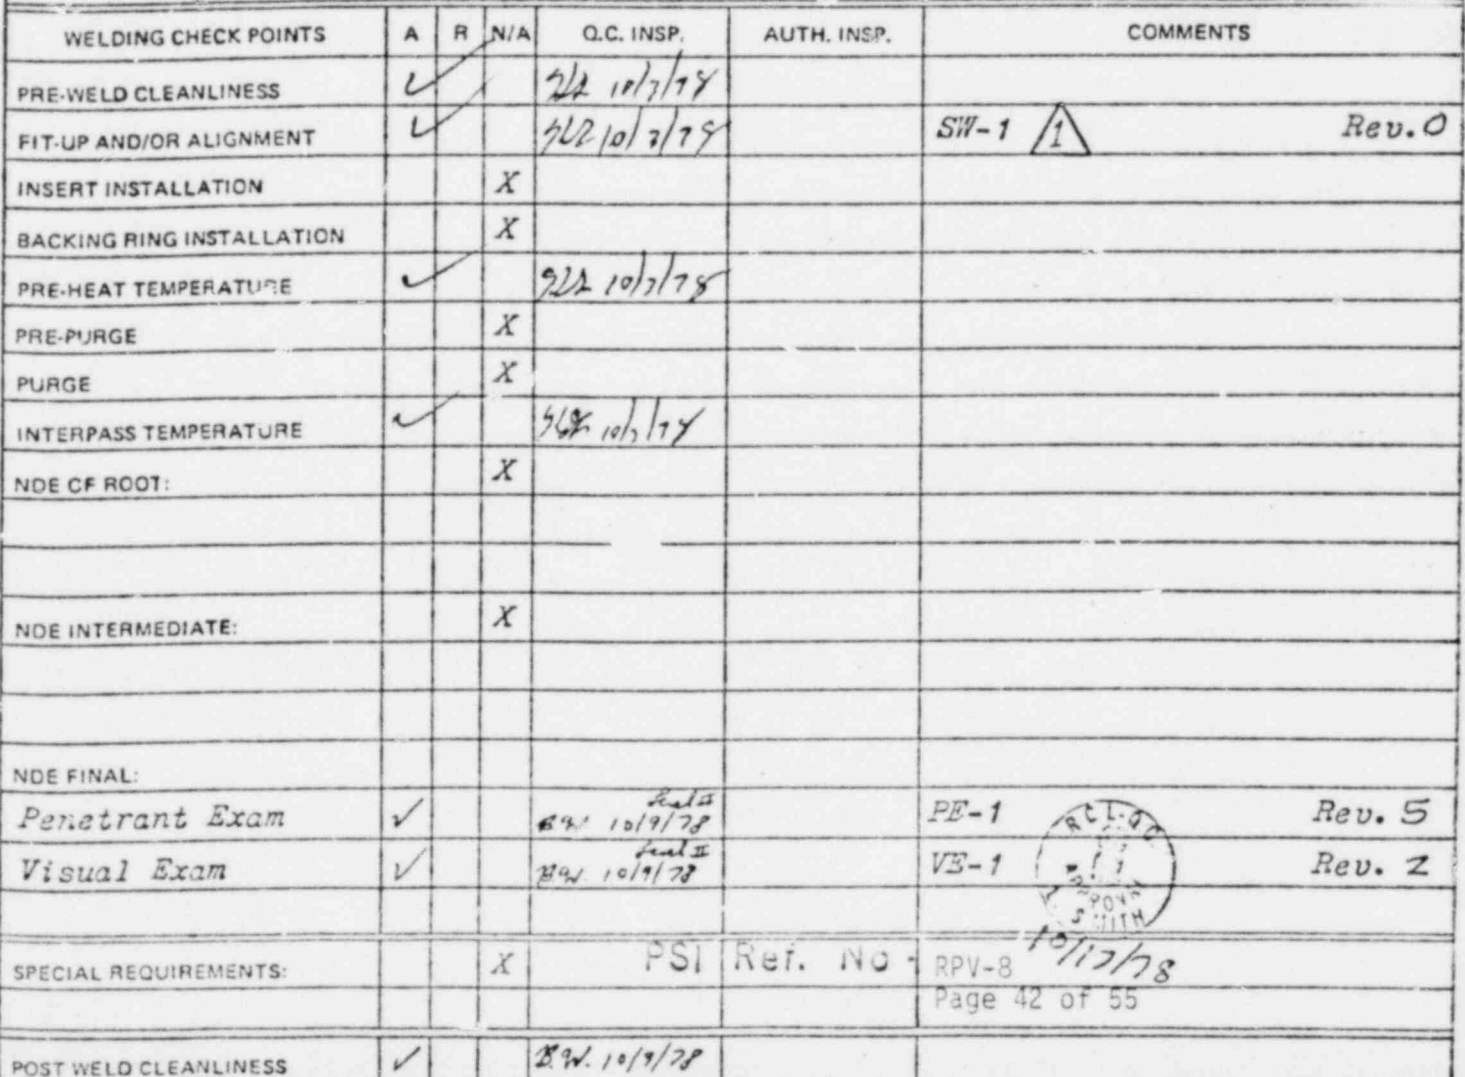 WELDING CHECK POINTS A R N/A Q.C. INSP. AUTH. INSP. COMMENTS
PRE-WELD CLEANLINESS ✓ 10/7/78
FIT-UP AND/OR ALIGNMENT ✓ 10/7/78 SW-1 1 Rev. 0
INSERT INSTALLATION X
BACKING RING INSTALLATION X
PRE-HEAT TEMPERATURE ✓ 10/7/78
PRE-PURGE X
PURGE X
INTERPASS TEMPERATURE ✓ 10/7/78
NDE OF ROOT: X
NDE INTERMEDIATE: X
NDE FINAL:
Level II
Penetrant Exam ✓ B.W. 10/9/78 PE-1 Rev. 5
Level II
Visual Exam ✓ B.W. 10/9/78 VE-1 Rev. 2
APPROVAL
SMITH
10/17/78
SPECIAL REQUIREMENTS: X PSI Ref. No - RPV-8
Page 42 of 55
POST WELD CLEANLINESS ✓ B.W. 10/9/78